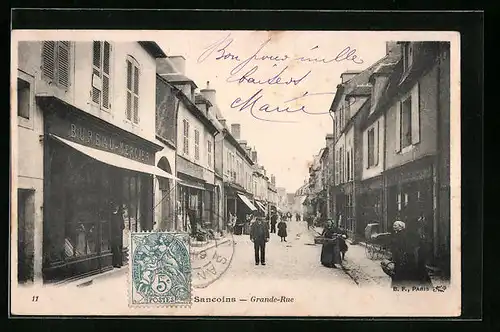 Bon jour mille
baisers
Marie
BUREAU-MERCIER
5
SAN
11
Sancoins — Grande-Rue
B. F., PARIS